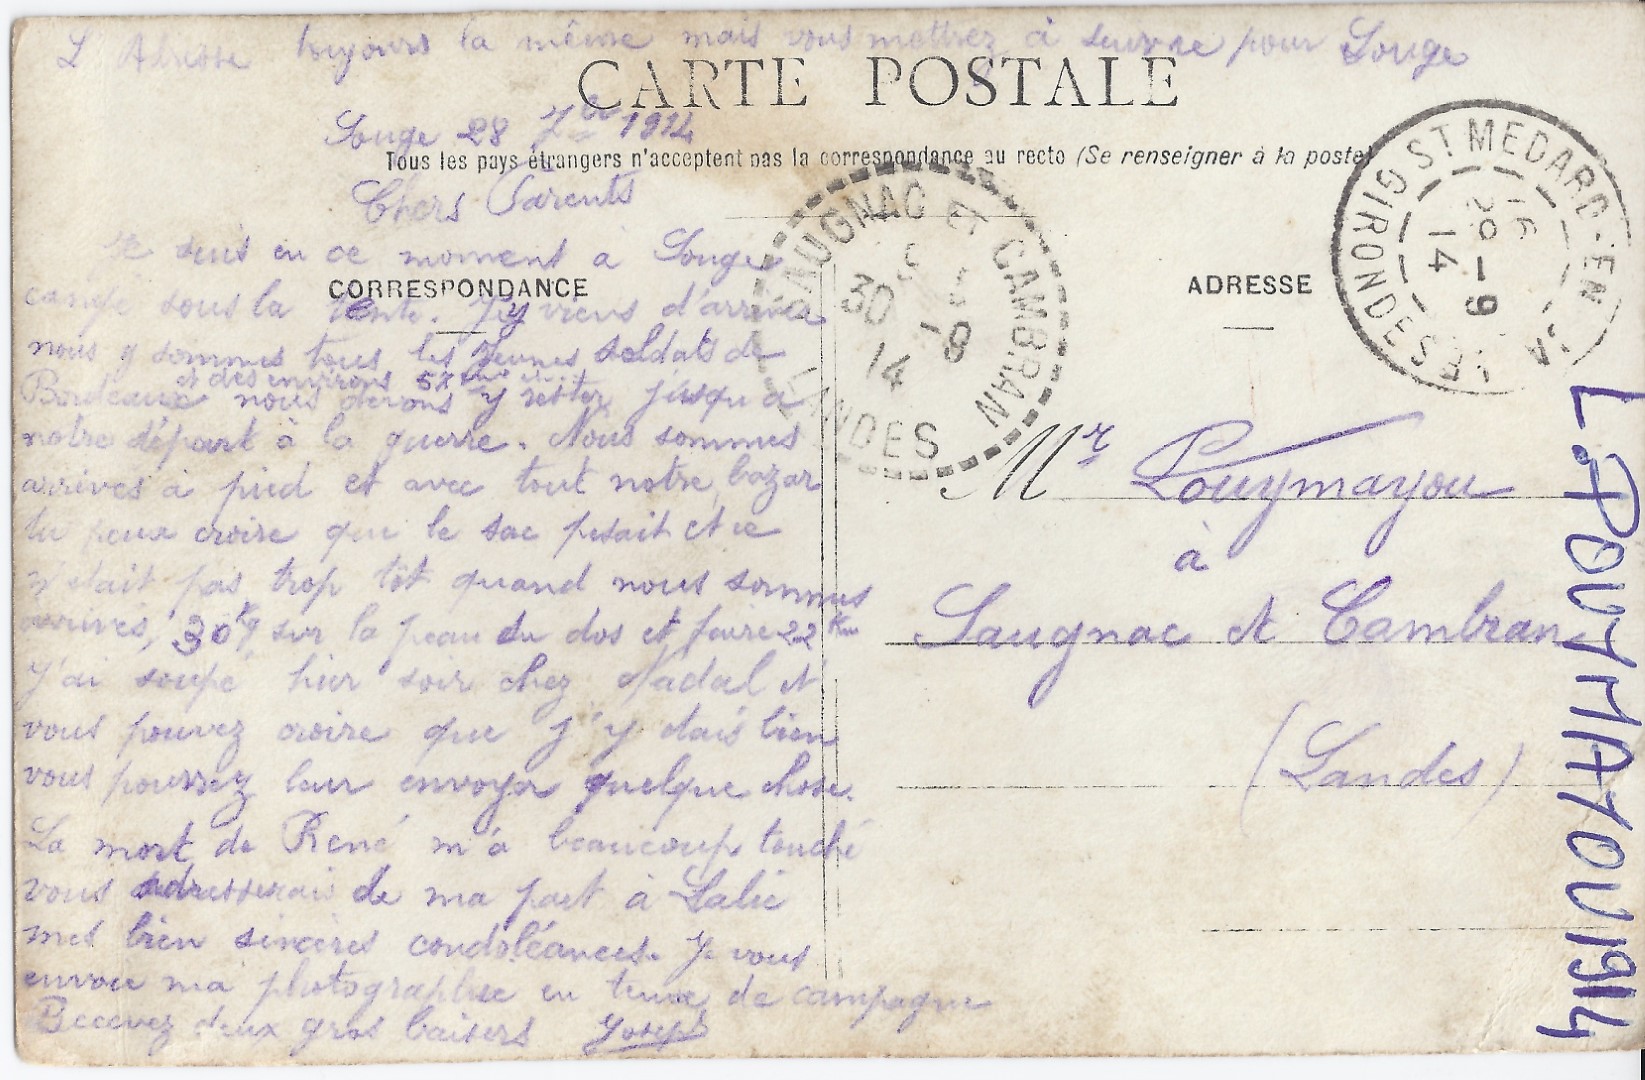 L'Adresse toujours la même mais vous mettrez à suivre pour Souge
CARTE POSTALE
Souge 28 7bre 1914
Tous les pays étrangers n'acceptent pas la correspondance au recto (Se renseigner à la poste)
Chers Parents
CORRESPONDANCE
Je suis en ce moment à Souge
campé sous la tente. J'y viens d'arriver
nous y sommes tous les jeunes soldats de
et des environs
Bordeaux nous devons y rester jusqu'à
notre départ à la guerre. Nous sommes
arrives à pied et avec tout notre bazar
tu peux croire que le sac pesait et ce
n'était pas trop tôt quand nous sommes
arrivés, 30 kg sur la peau du dos et faire 22 Km
J'ai soupé hier soir chez Nadal et
vous pouvez croire que j'y dais bien
vous pourrez leur envoyer quelque chose.
La mort de René m'a beaucoup touché
vous adresserais de ma part à Lalie
mes bien sincères condoléances. Je vous
envoie ma photographie en tenue de campagne
Recevez deux gros baisers Joseph
SAUGNAC ET CAMBRAN
30 -9
14
LANDES
ADRESSE
ST MEDARD-EN-JALLES
16
29 -9
14
GIRONDE
Mr Pouymayou
à
Saugnac et Cambran
(Landes)
LAPOUYMAYOU 1914